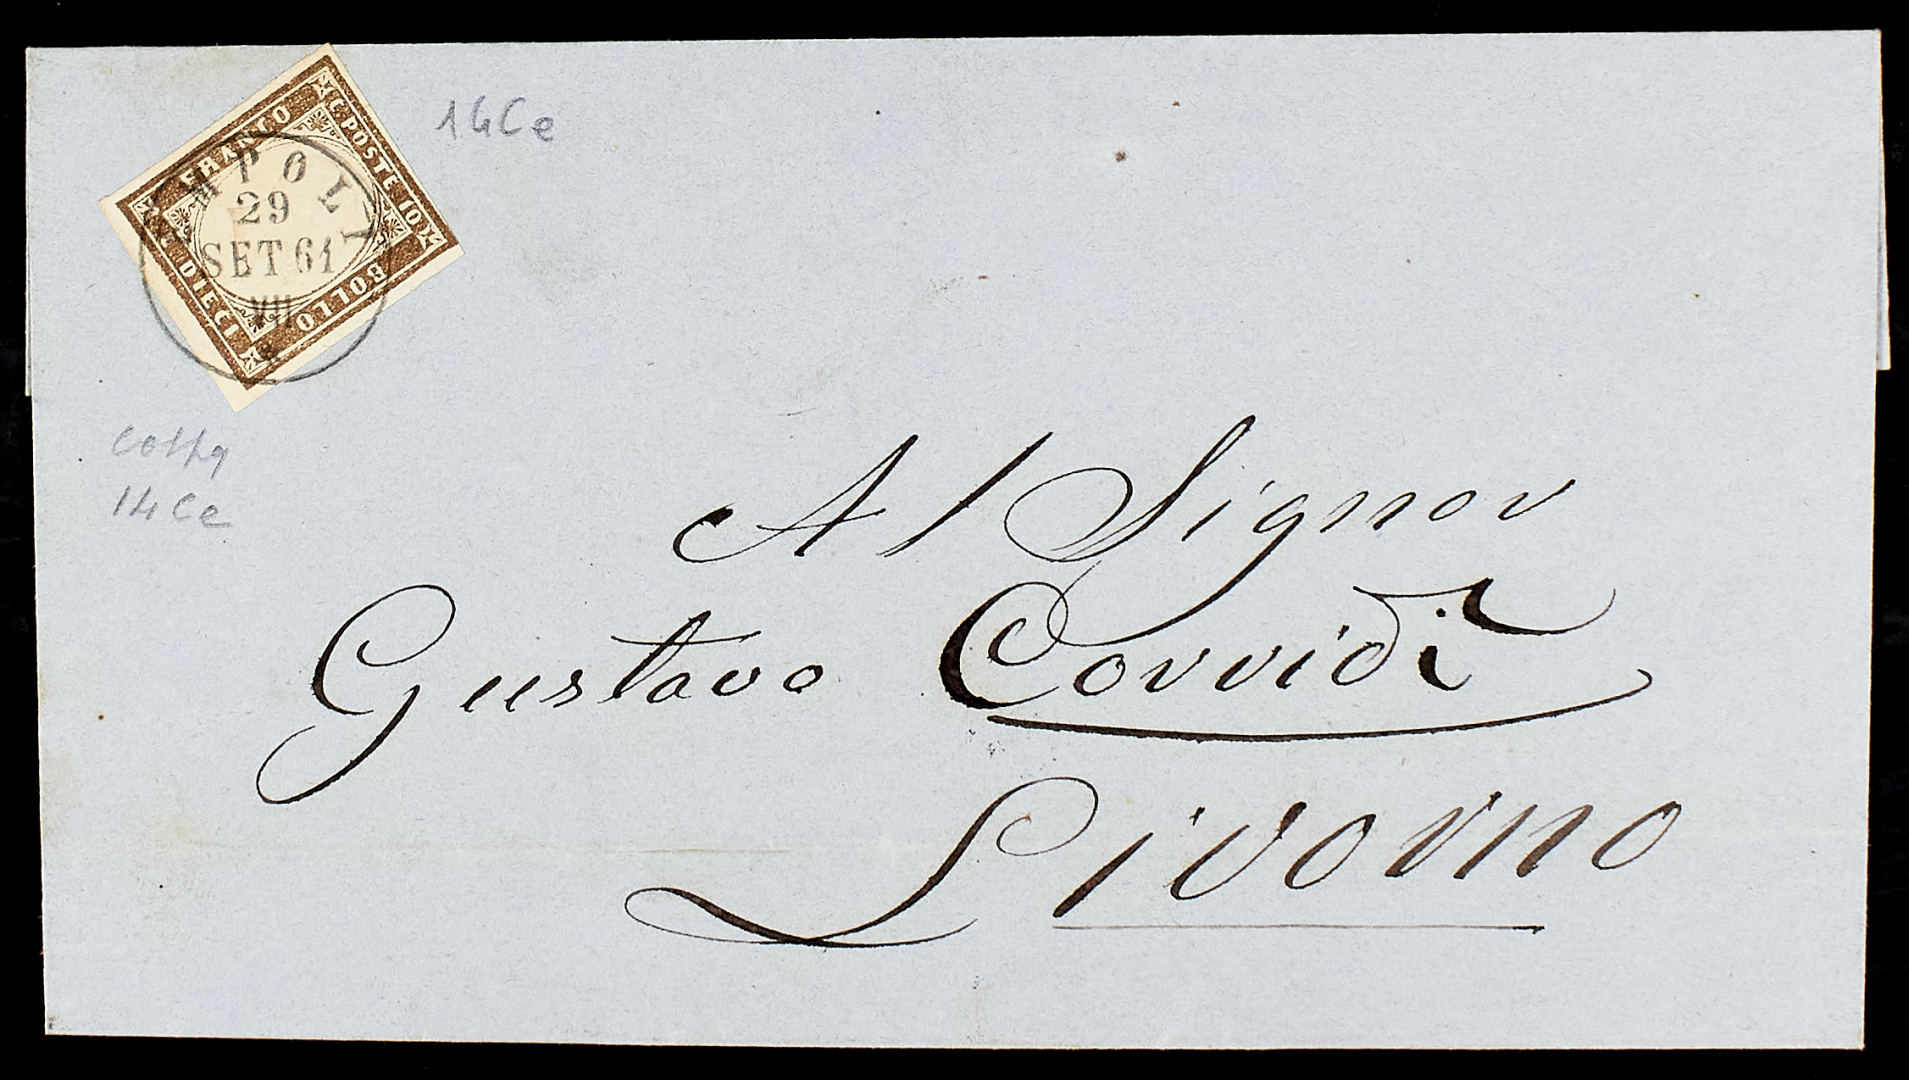 FRANCO
C. POSTE 10
BOLLO
C. DIECI
EMPOLI
29
SET 61
VII
14Ce
14Ce
Al Signor
Gustavo Corridi
Livorno